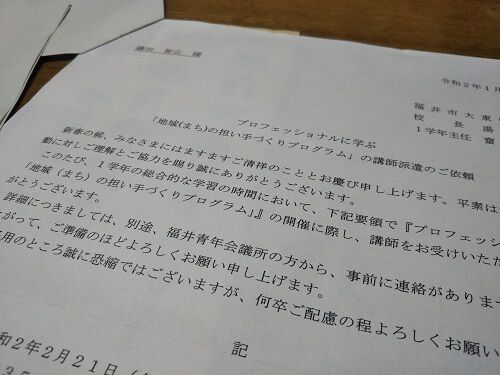 鎌田 智広 様
令和２年１月
福井市大東
校長 湯
１学年主任 齋
プロフェッショナルに学ぶ
「地域(まち)の担い手づくりプログラム」の講師派遣のご依頼
新春の候、みなさまにはますますご清祥のこととお慶び申し上げます。平素は
動に対しご理解とご協力を賜り誠にありがとうございます。
このたび、１学年の総合的な学習の時間において、下記要領で『プロフェッシ
「地域（まち）の担い手づくりプログラム」』の開催に際し、講師をお受けいただ
がとうございます。
詳細につきましては、別途、福井青年会議所の方から、事前に連絡がありま
がって、ご準備のほどよろしくお願い申し上げます。
用のところ誠に恐縮ではございますが、何卒ご配慮の程よろしくお願い
記
和２年２月２１日